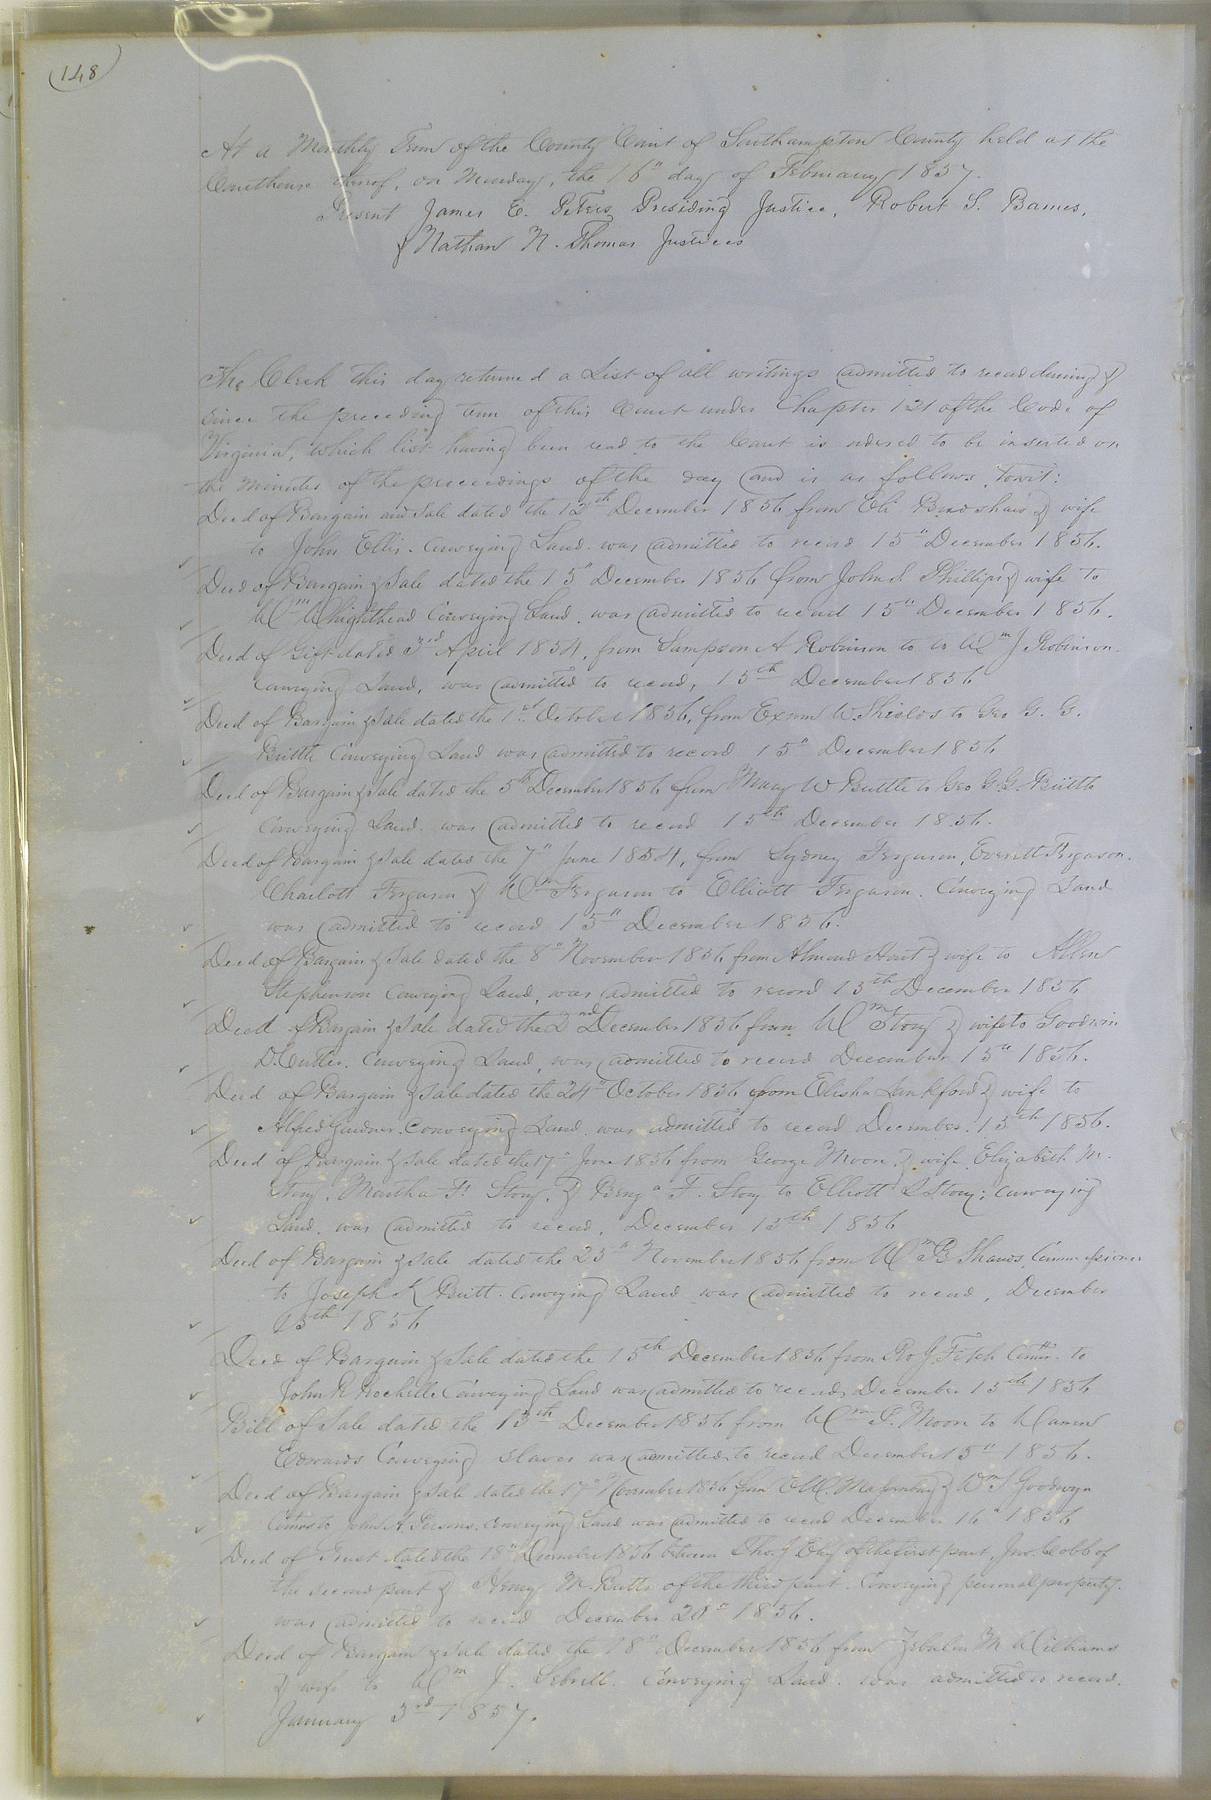 148
At a Monthly Term of the County Court of Southampton County held at the
Courthouse thereof, on Monday, the 16" day of February 1857.
Present James E. Peters Presiding Justice, Robert S. Barnes,
& Nathan N. Thomas Justices
The Clerk this day returned a List of all writings admitted to record during &
since the preceeding term of this Court under Chapter 121 of the Code of
Virginia, which list having been read to the Court is ordered to be inserted on
the minutes of the proceedings of the day and is as follows, towit:
Deed of Bargain and Sale dated the 12th December 1856 from Eli Bradshaw & wife
to John Ellis. Conveying Land. was admitted to record 15" December 1856.
Deed of Bargain & Sale dated the 15" December 1856 from John S. Phillips & wife to
Wm Whighthead Conveying Land. was admitted to record 15" December 1856.
Deed of Gift dated 3rd April 1854, from Sampson A Robinson to to Wm J Robinson
Conveying Land, was admitted to record, 15th December 1856
Deed of Bargain & Sale dated the 1st October 1856, from Exum W. Shields to Geo G. G.
Brittle Conveying Land was admitted to record 15" December 1856
Deed of Bargain & Sale dated the 5th December 1856 from Mary W Brittle to Geo G. G. Brittle
Conveying Land. was admitted to record 15th December 1856.
Deed of Bargain & Sale dated the 7" June 1854, from Sydney Ferguson, Everett Ferguson.
Charlott Ferguson & Wm Ferguson to Elliott Ferguson. Conveying Land
was admitted to record 15" December 1856.
Deed of Bargain & Sale dated the 8" November 1856 from Almond Hart & wife to Allen
Stephenson Conveying Land, was admitted to record 15th December 1856
Deed of Bargain & Sale dated the 2nd December 1856 from Wm Story & wife to Goodwin
D. Cutler. Conveying Land, was admitted to record December 15" 1856.
Deed of Bargain & Sale dated the 24" October 1856 from Elisha Lankford & wife to
Alfred Gardner. Conveying Land. was admitted to record December. 15th 1856.
Deed of Bargain & Sale dated the 17" June 1856 from George Moon, & wife, Elizabeth M.
Story, Martha F. Story, & Benja F. Story to Elliott S Story; Conveying
Land. was admitted to record, December 15th 1856
Deed of Bargain & Sale dated the 25" November 1856 from Wm B Shands Commissioner
to Joseph K Britt. Conveying Land was admitted to record, December
15th 1856
Deed of Bargain & Sale dated the 15th December 1856 from Ro J. Fitch Comr. to
John R Rochelle Conveying Land was admitted to record December 15th 1856
Bill of Sale dated the 15th December 1856 from Wm F. Moon to Warren
Edwards Conveying slaves was admitted to record December 15" 1856.
Deed of Bargain & Sale dated the 17" November 1856 from & Wm S Goodwyn
Comrs to John A. Persons. conveying Land was admitted to record December 16" 1856
Deed of Trust dated the 18" December 1856 between Tho. J Eley of the first part, Jno. Cobb of
the second part & Henry M. Butts of the third part. Conveying personal property.
was admitted to record December 20" 1856.
Deed of Bargain & Sale dated the 18" December 1856 from Zebulon M Williams
& wife to Wm J. Sebrell. Conveying Land. was admitted to record.
January 3rd 1857.